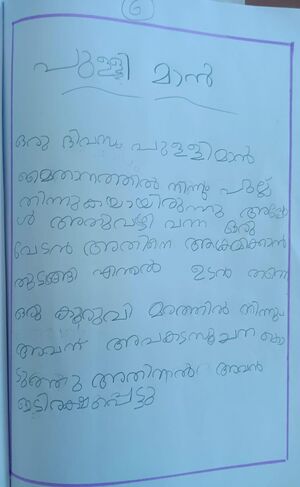 6
പുള്ളി മാൻ
ഒരു ദിവസം പുള്ളിമാൻ
മൈതാനത്തിൽ നിന്നും പുല്ല്
തിന്നുകയായിരുന്നു അപ്പോ
ൾ അതുവഴി വന്ന ഒരു
വേടൻ അതിനെ ആക്രമിക്കാൻ
തുടങ്ങി എന്നാൽ ഉടൻ തന്നെ
ഒരു കുരുവി മരത്തിൽ നിന്നും
അവന് അപകടസൂചന കൊ
ടുത്തു അതിനാൽ അവൻ
ഓടിരക്ഷപ്പെട്ടു